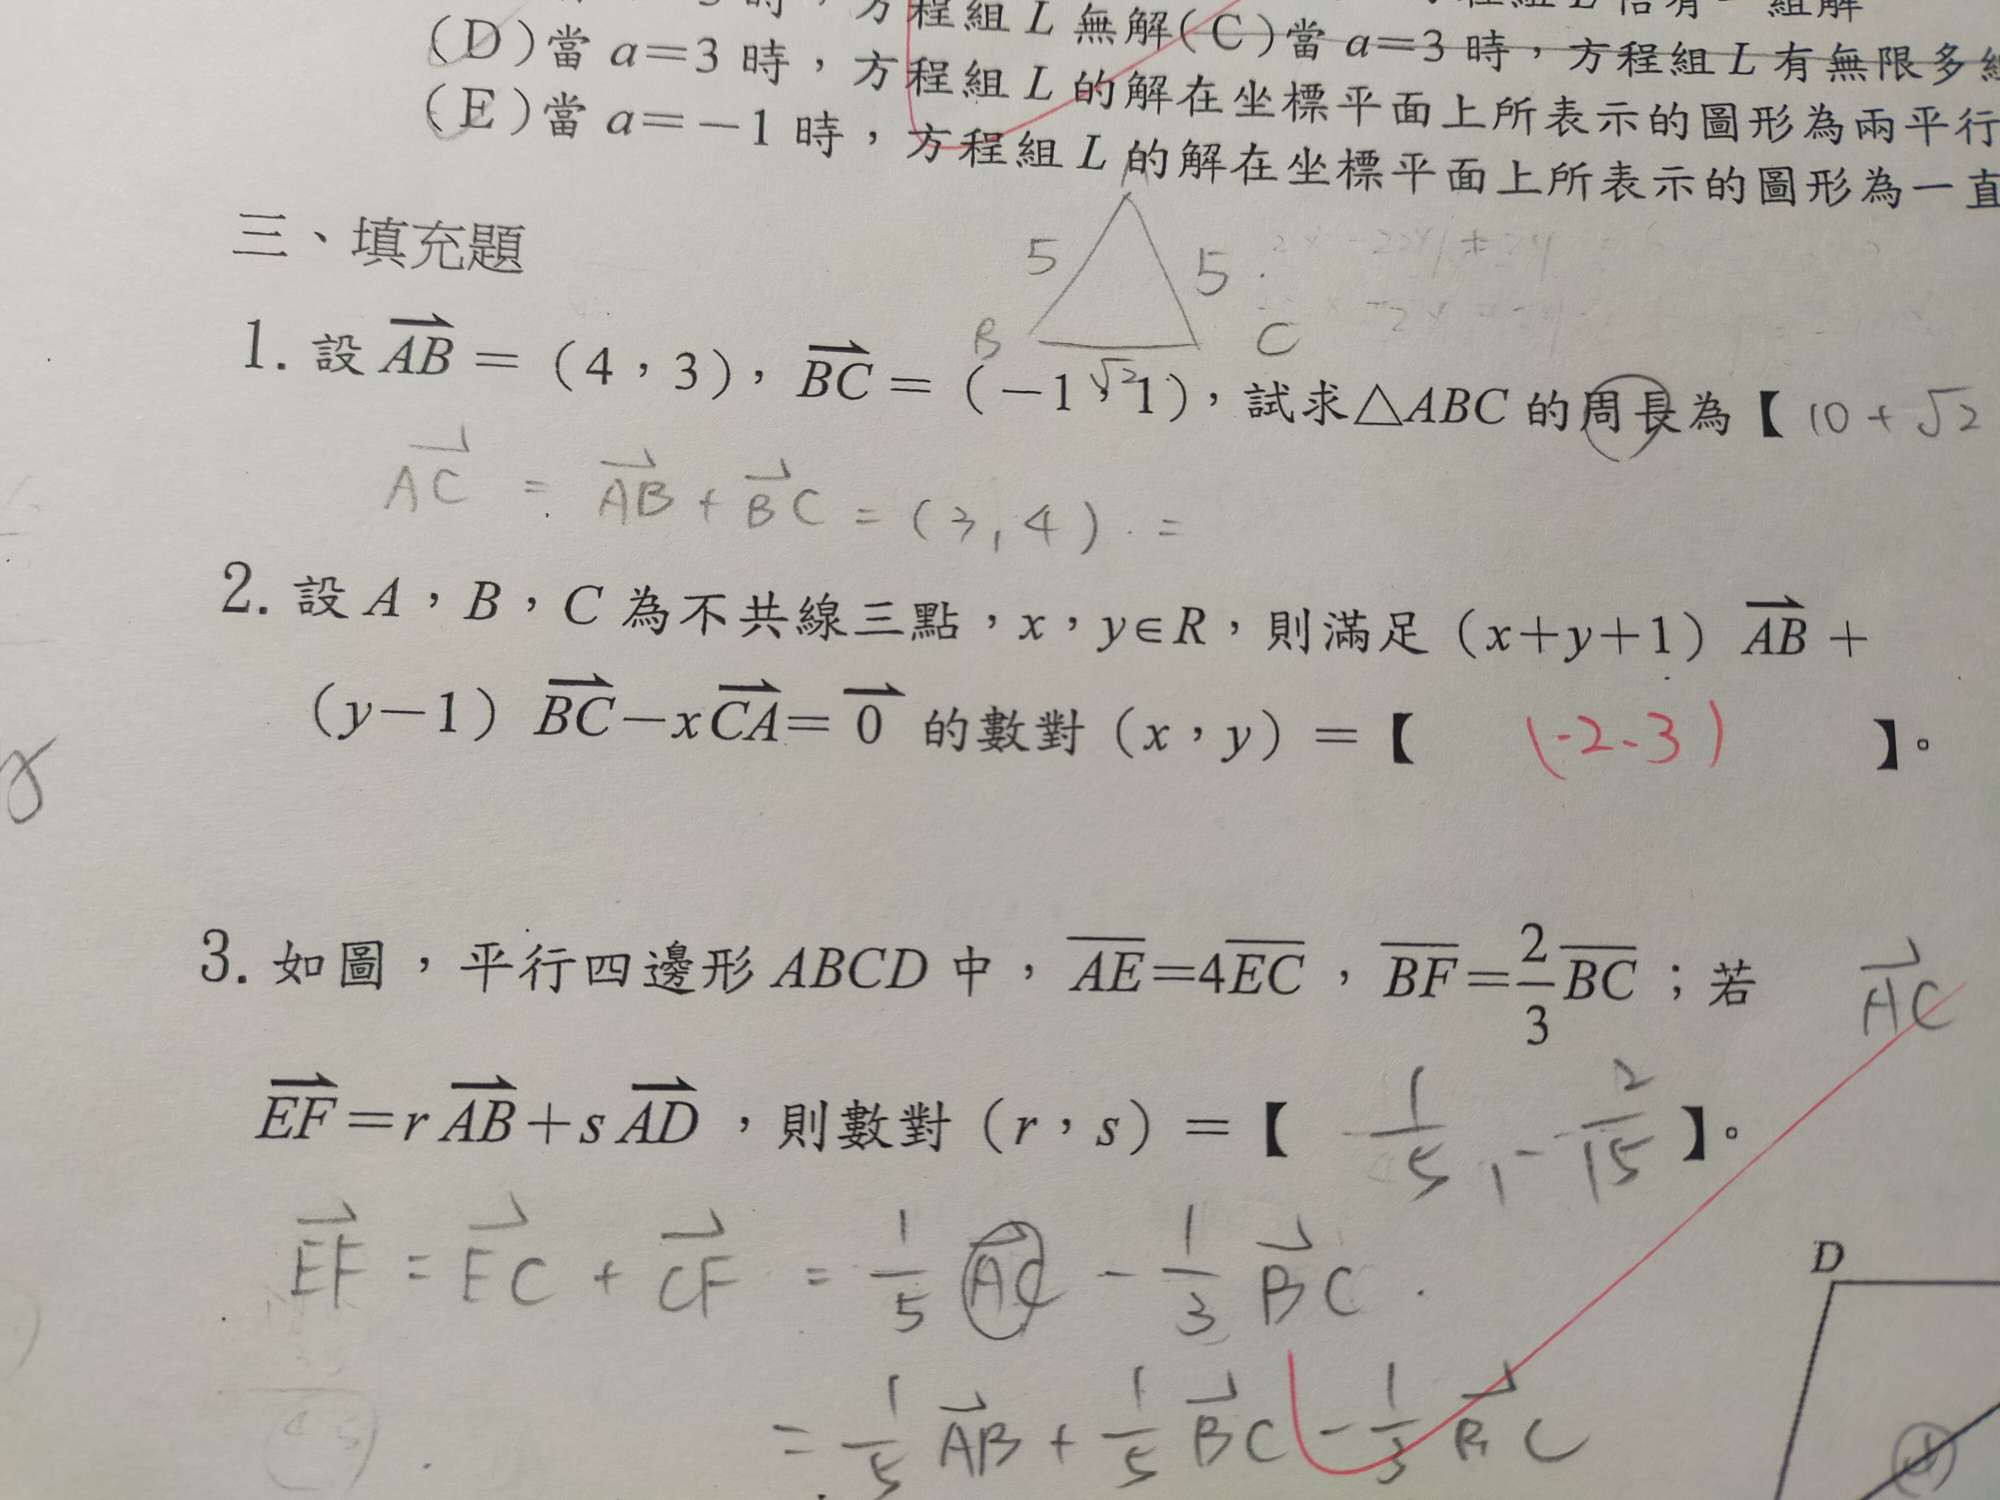 時，方程組 L 無解(C)當 a=3 時，方程組 L 有無限多
(D)當 a=3 時，方程組 L 的解在坐標平面上所表示的圖形為兩平行
(E)當 a=-1 時，方程組 L 的解在坐標平面上所表示的圖形為一直
三、填充題
5 5
B C
√2
1. 設 \overrightarrow{AB} = (4，3)，\overrightarrow{BC} = (-1，1)，試求△ABC 的周長為【 10 + √2
\overrightarrow{AC} = \overrightarrow{AB} + \overrightarrow{BC} = (3, 4) =
2. 設 A，B，C 為不共線三點，x，y∈R，則滿足 (x+y+1) \overrightarrow{AB} +
(y-1) \overrightarrow{BC}-x\overrightarrow{CA}=\overrightarrow{0} 的數對 (x，y) =【 (-2、3) 】。
3. 如圖，平行四邊形 ABCD 中，\overline{AE}=4\overline{EC}，\overline{BF}=\frac{2}{3}\overline{BC}；若 \overrightarrow{AC}
\overrightarrow{EF}=r\overrightarrow{AB}+s\overrightarrow{AD}，則數對 (r，s) =【 \frac{1}{5}, -\frac{2}{15} 】。
\overrightarrow{EF} = \overrightarrow{EC} + \overrightarrow{CF} = \frac{1}{5}\overrightarrow{AC} - \frac{1}{3}\overrightarrow{BC}
D
= \frac{1}{5}\overrightarrow{AB} + \frac{1}{5}\overrightarrow{BC} - \frac{1}{3}\overrightarrow{BC}